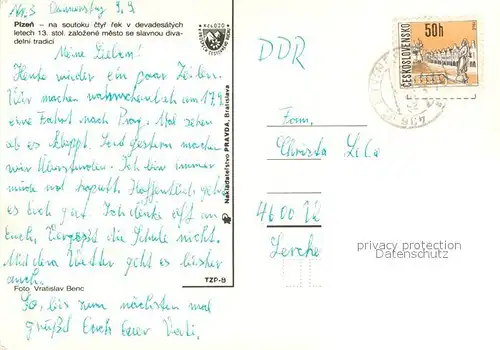 Nr. 3 Donnerstag 9.9
Plzeň – na soutoku čtyř řek v devadesátých
letech 13. stol. založené město se slavnou diva-
delní tradicí
Meine Lieben!
Heute wieder ein paar Zeilen.
Wir machen wahrscheinlich am 17.9.
eine Fahrt nach Prag. Mal sehen
ob es klappt. Und gestern machen
wir Überstunden. Ich bin immer
müde und kaputt. Hoffentlich geht
es Euch gut. Ich denke oft an
Euch. Vergeßt die Schule nicht.
Mit dem Wetter geht es bisher
auch.
Foto Vratislav Benc
So, bis zum nächsten mal
grüßt Euch Euer Vati.
TZP-8
Nakladatelstvo PRAVDA, Bratislava
DDR
Fam.
Christa
4600
Lerche
ČESKOSLOVENSKO
50h
privacy protection
Datenschutz